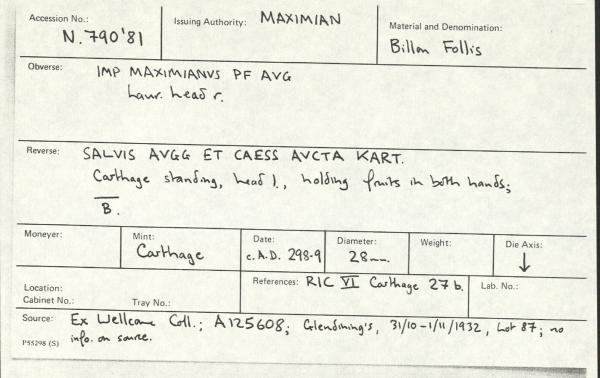 Accession No.: N.790'81
Issuing Authority: MAXIMIAN
Material and Denomination: Billon Follis
Obverse: IMP MAXIMIANVS PF AVG
Laur. head r.
Reverse: SALVIS AVGG ET CAESS AVCTA KART.
Carthage standing, head l., holding fruits in both hands;
B.
Moneyer:
Mint: Carthage
Date: c. A.D. 298-9
Diameter: 28mm.
Weight:
Die Axis: ↓
Location:
Cabinet No.: Tray No.:
References: RIC VI Carthage 27b.
Lab. No.:
Source: Ex Wellcome Coll.; A125608; Glendining's, 31/10-1/11/1932, Lot 87; no
info. on source.
P55298 (S)